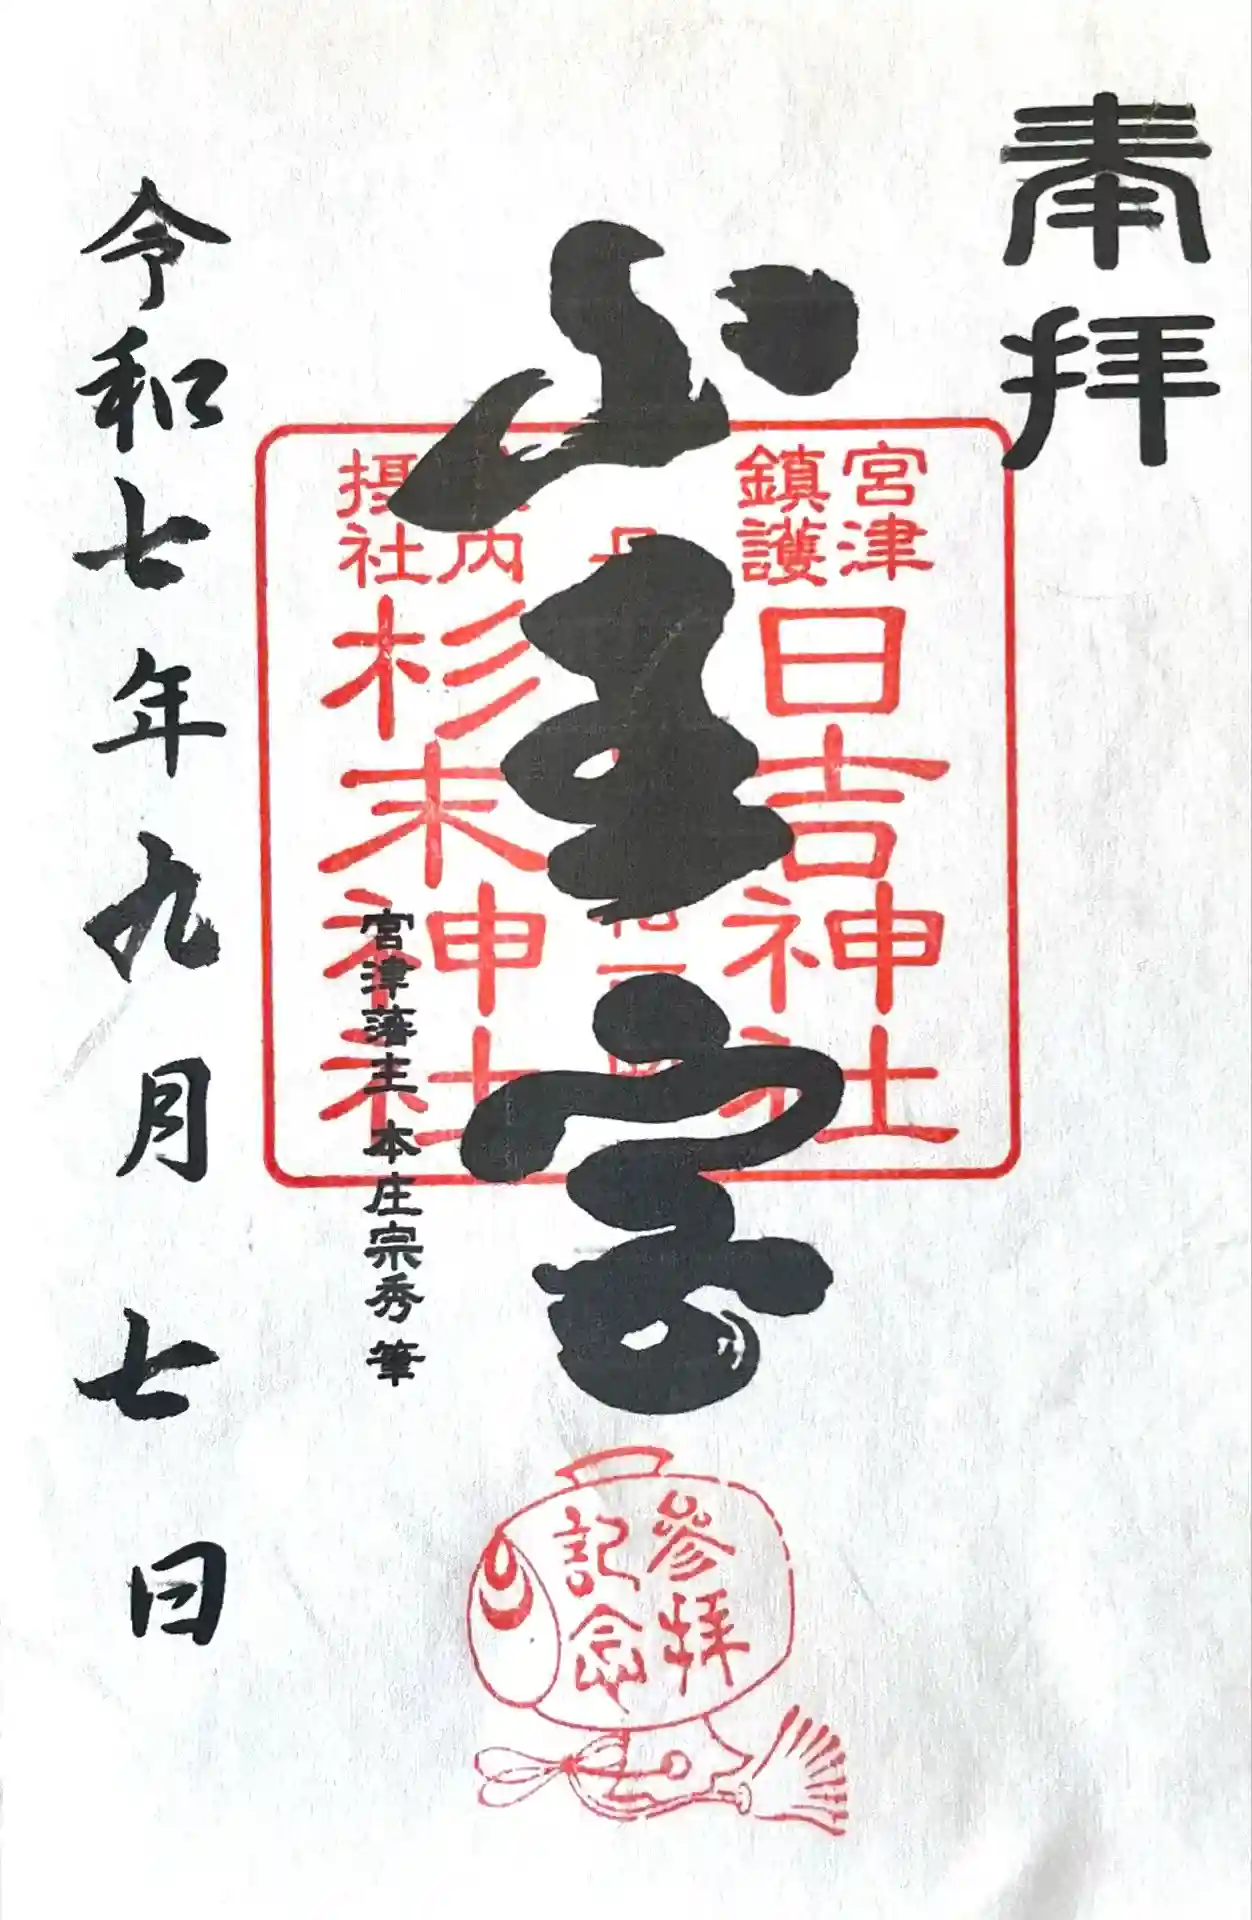 奉拝
宮津
鎮護
日吉神社
山王宮
内
摂社
杉末神社
宮津藩主 本庄宗秀 筆
令和七年九月七日
参拝
記念